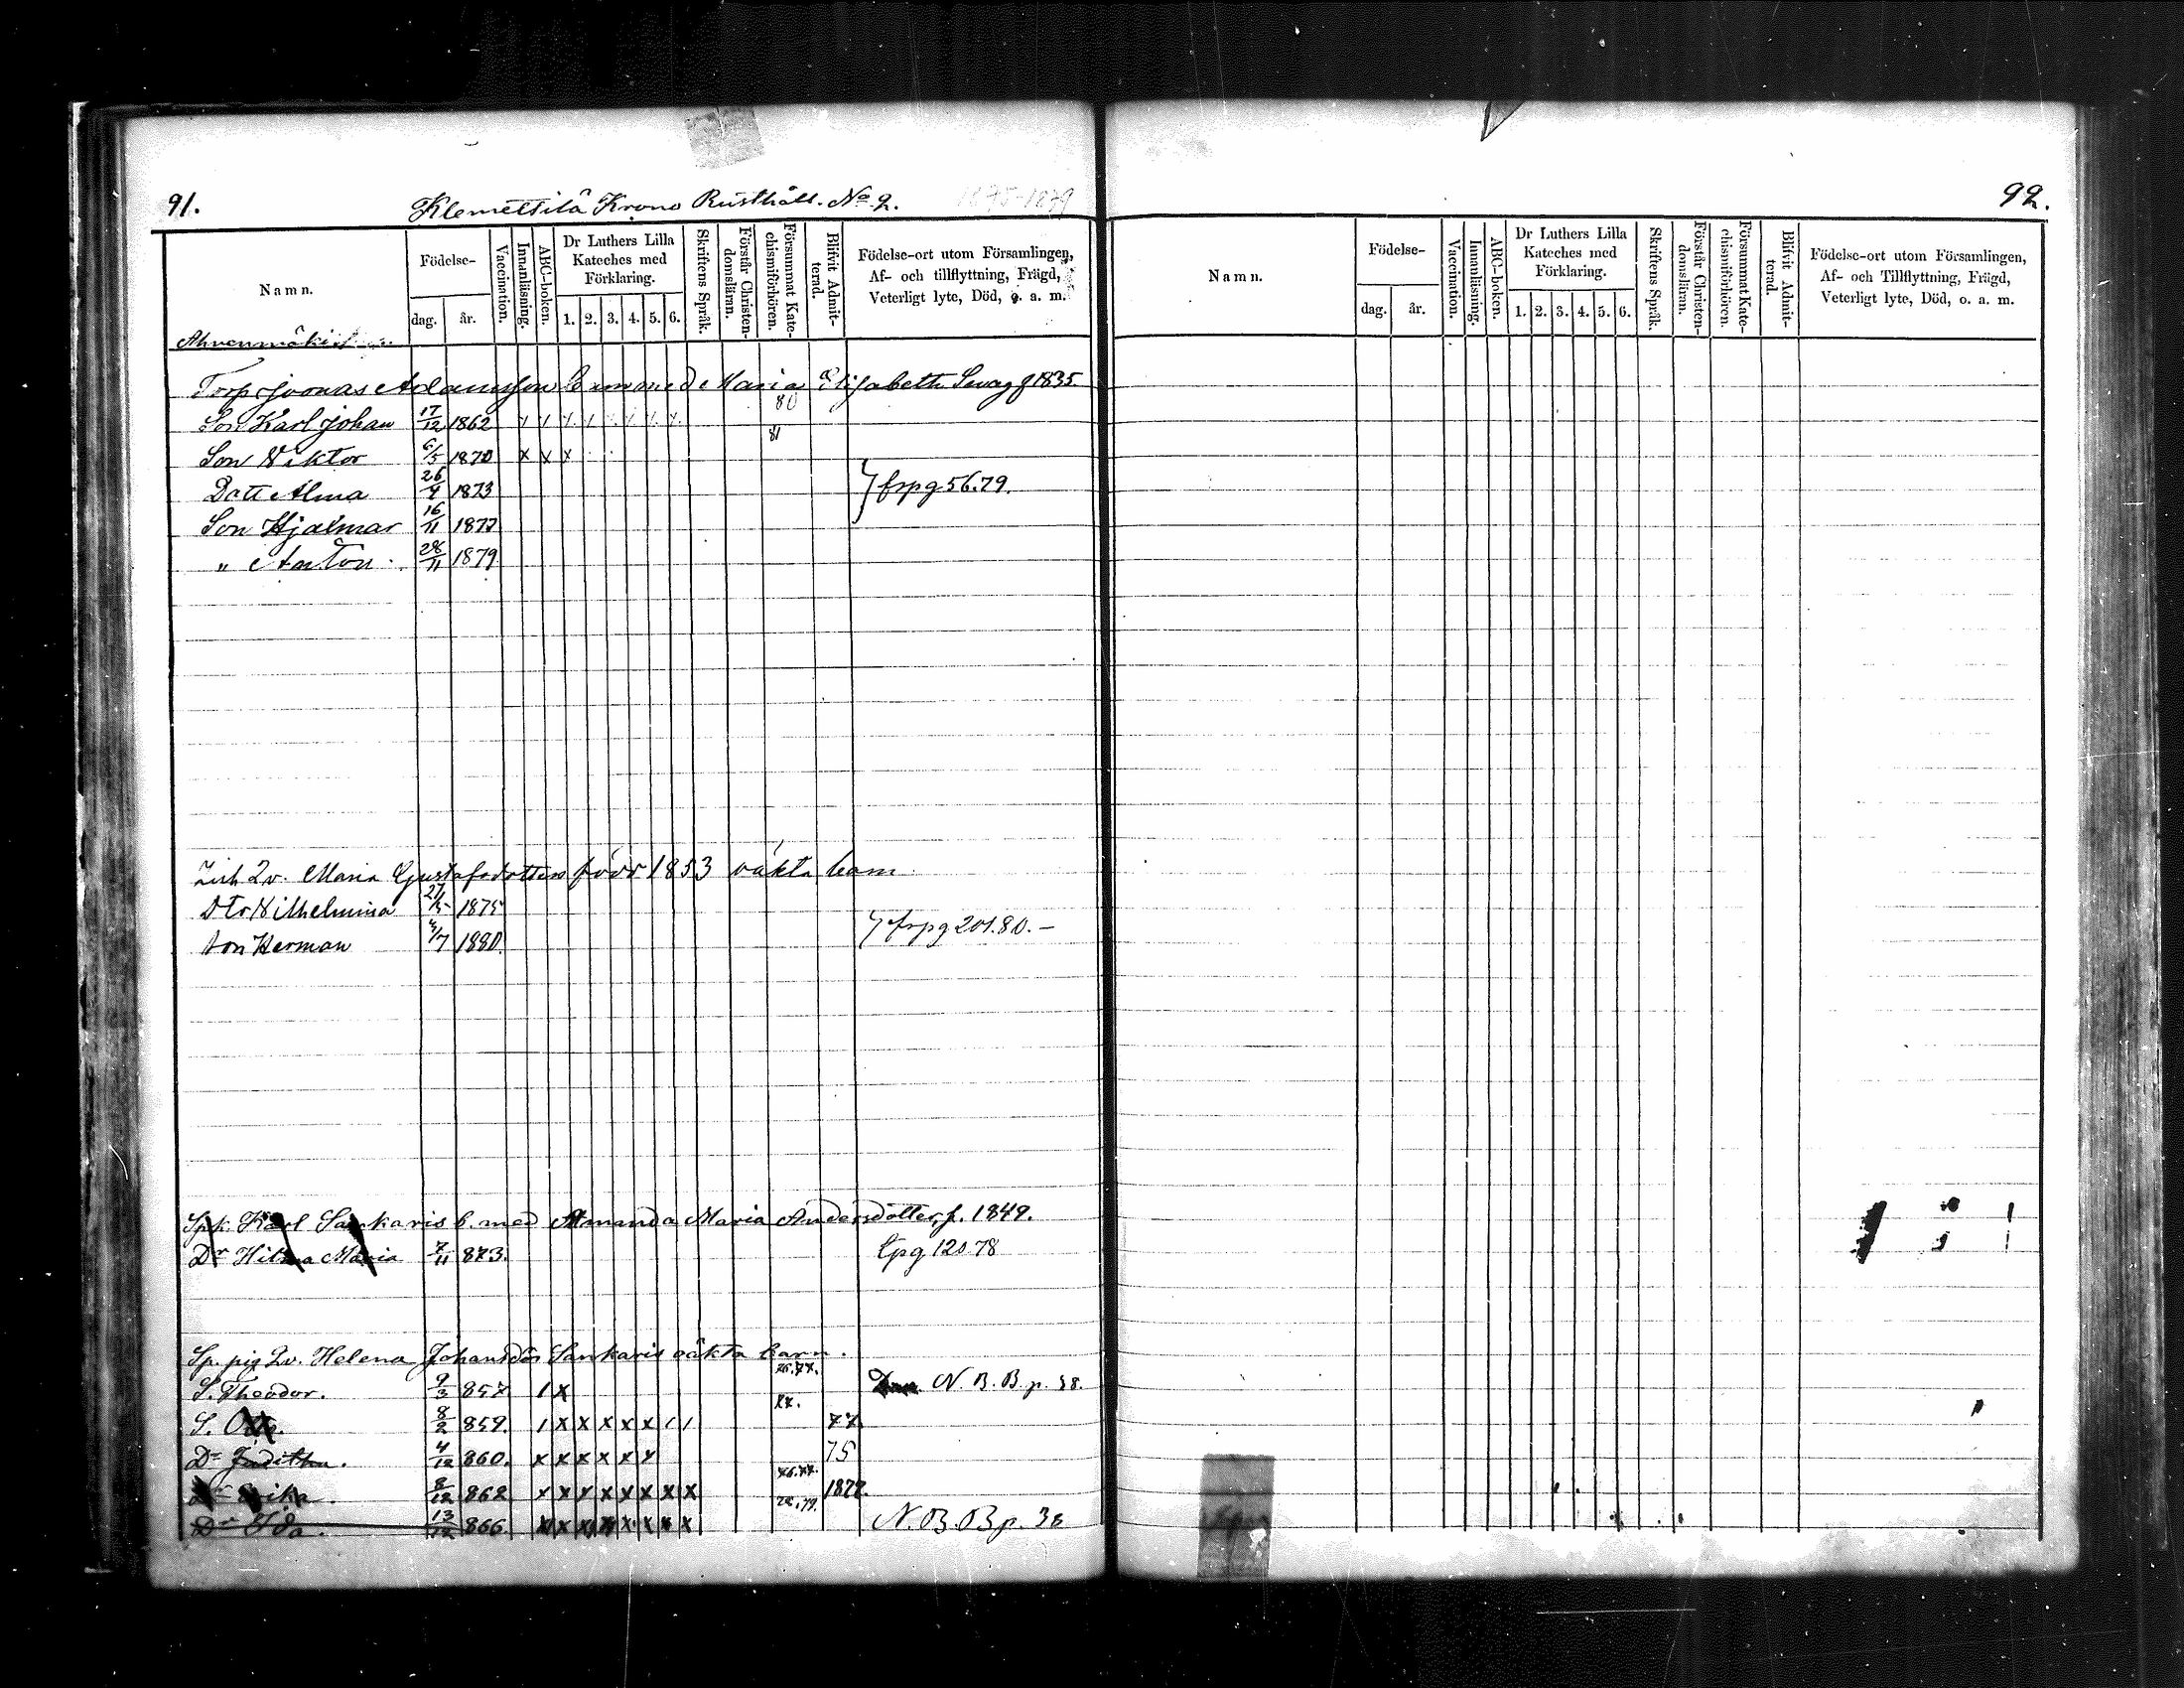 91.
Klemettilä Krono Rusthåll. No 2. 1875-1879
Namn.
Födelse-
dag.
år.
Vaccination.
Innanläsning.
ABC-boken.
Dr Luthers Lilla Kateches med Förklaring.
1. 2. 3. 4. 5. 6.
Skriftens Språk.
Förstår Christen-domsläran.
Försummat Kate-chismiförhören.
Blifvit Admit-terad.
Födelse-ort utom Församlingen,
Af- och tillflyttning, Frägd,
Veterligt lyte, Död, o. a. m.
Ahvenmäki
Torp Joonas Adamsson b m med Maria Elisabeth f 1835
80
Son Karl Johan 17/12 1862
81
Son Viktor 6/5 1870 x x x
Dott Alma 26/4 1873 frpg 56.79.
Son Hjalmar 16/11 1877
" Anton 28/11 1879
Inh Qv. Maria Gustafsdotters född 1853 oäkta barn
Dtr Wilhelmina 27/5 1875
frpg 201.80. –
Son Herman 4/7 1880.
Spk. Karl Sankaris b. med Amanda Maria Andersdotter, f. 1849.
Dr Hilma Maria 7/11 873. tpg 120 78
Sp. pig Qv. Helena Johansdr Sankaris oäkta barn.
76.77.
S. Theodor. 9/3 857 / x N. B. B p. 38.
77.
S. Otto. 8/2 859. / x x x x x / / 77
Dr Juditha. 4/12 860. x x x x x x 75
76.77.
Dr Erika. 8/12 862 x x x x x x x x 1878.
78.79.
Dr Ida. 13/12 866 x x x x x x x x N. B. B p. 38
92.
Namn.
Födelse-
dag.
år.
Vaccination.
Innanläsning.
ABC-boken.
Dr Luthers Lilla Kateches med Förklaring.
1. 2. 3. 4. 5. 6.
Skriftens Språk.
Förstår Christen-domsläran.
Försummat Kate-chismiförhören.
Blifvit Admit-terad.
Födelse-ort utom Församlingen,
Af- och Tillflyttning, Frägd,
Veterligt lyte, Död, o. a. m.